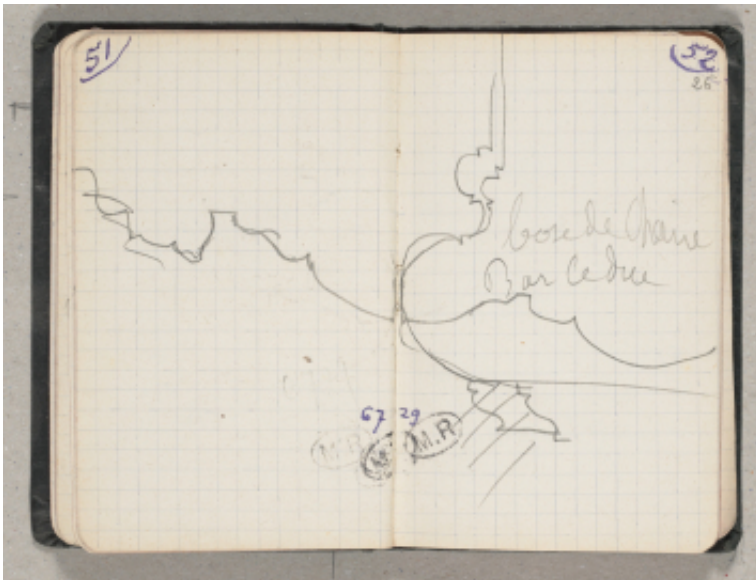 51
52
26
base de Chaire
Bar le duc
67 29
M.R
M.R